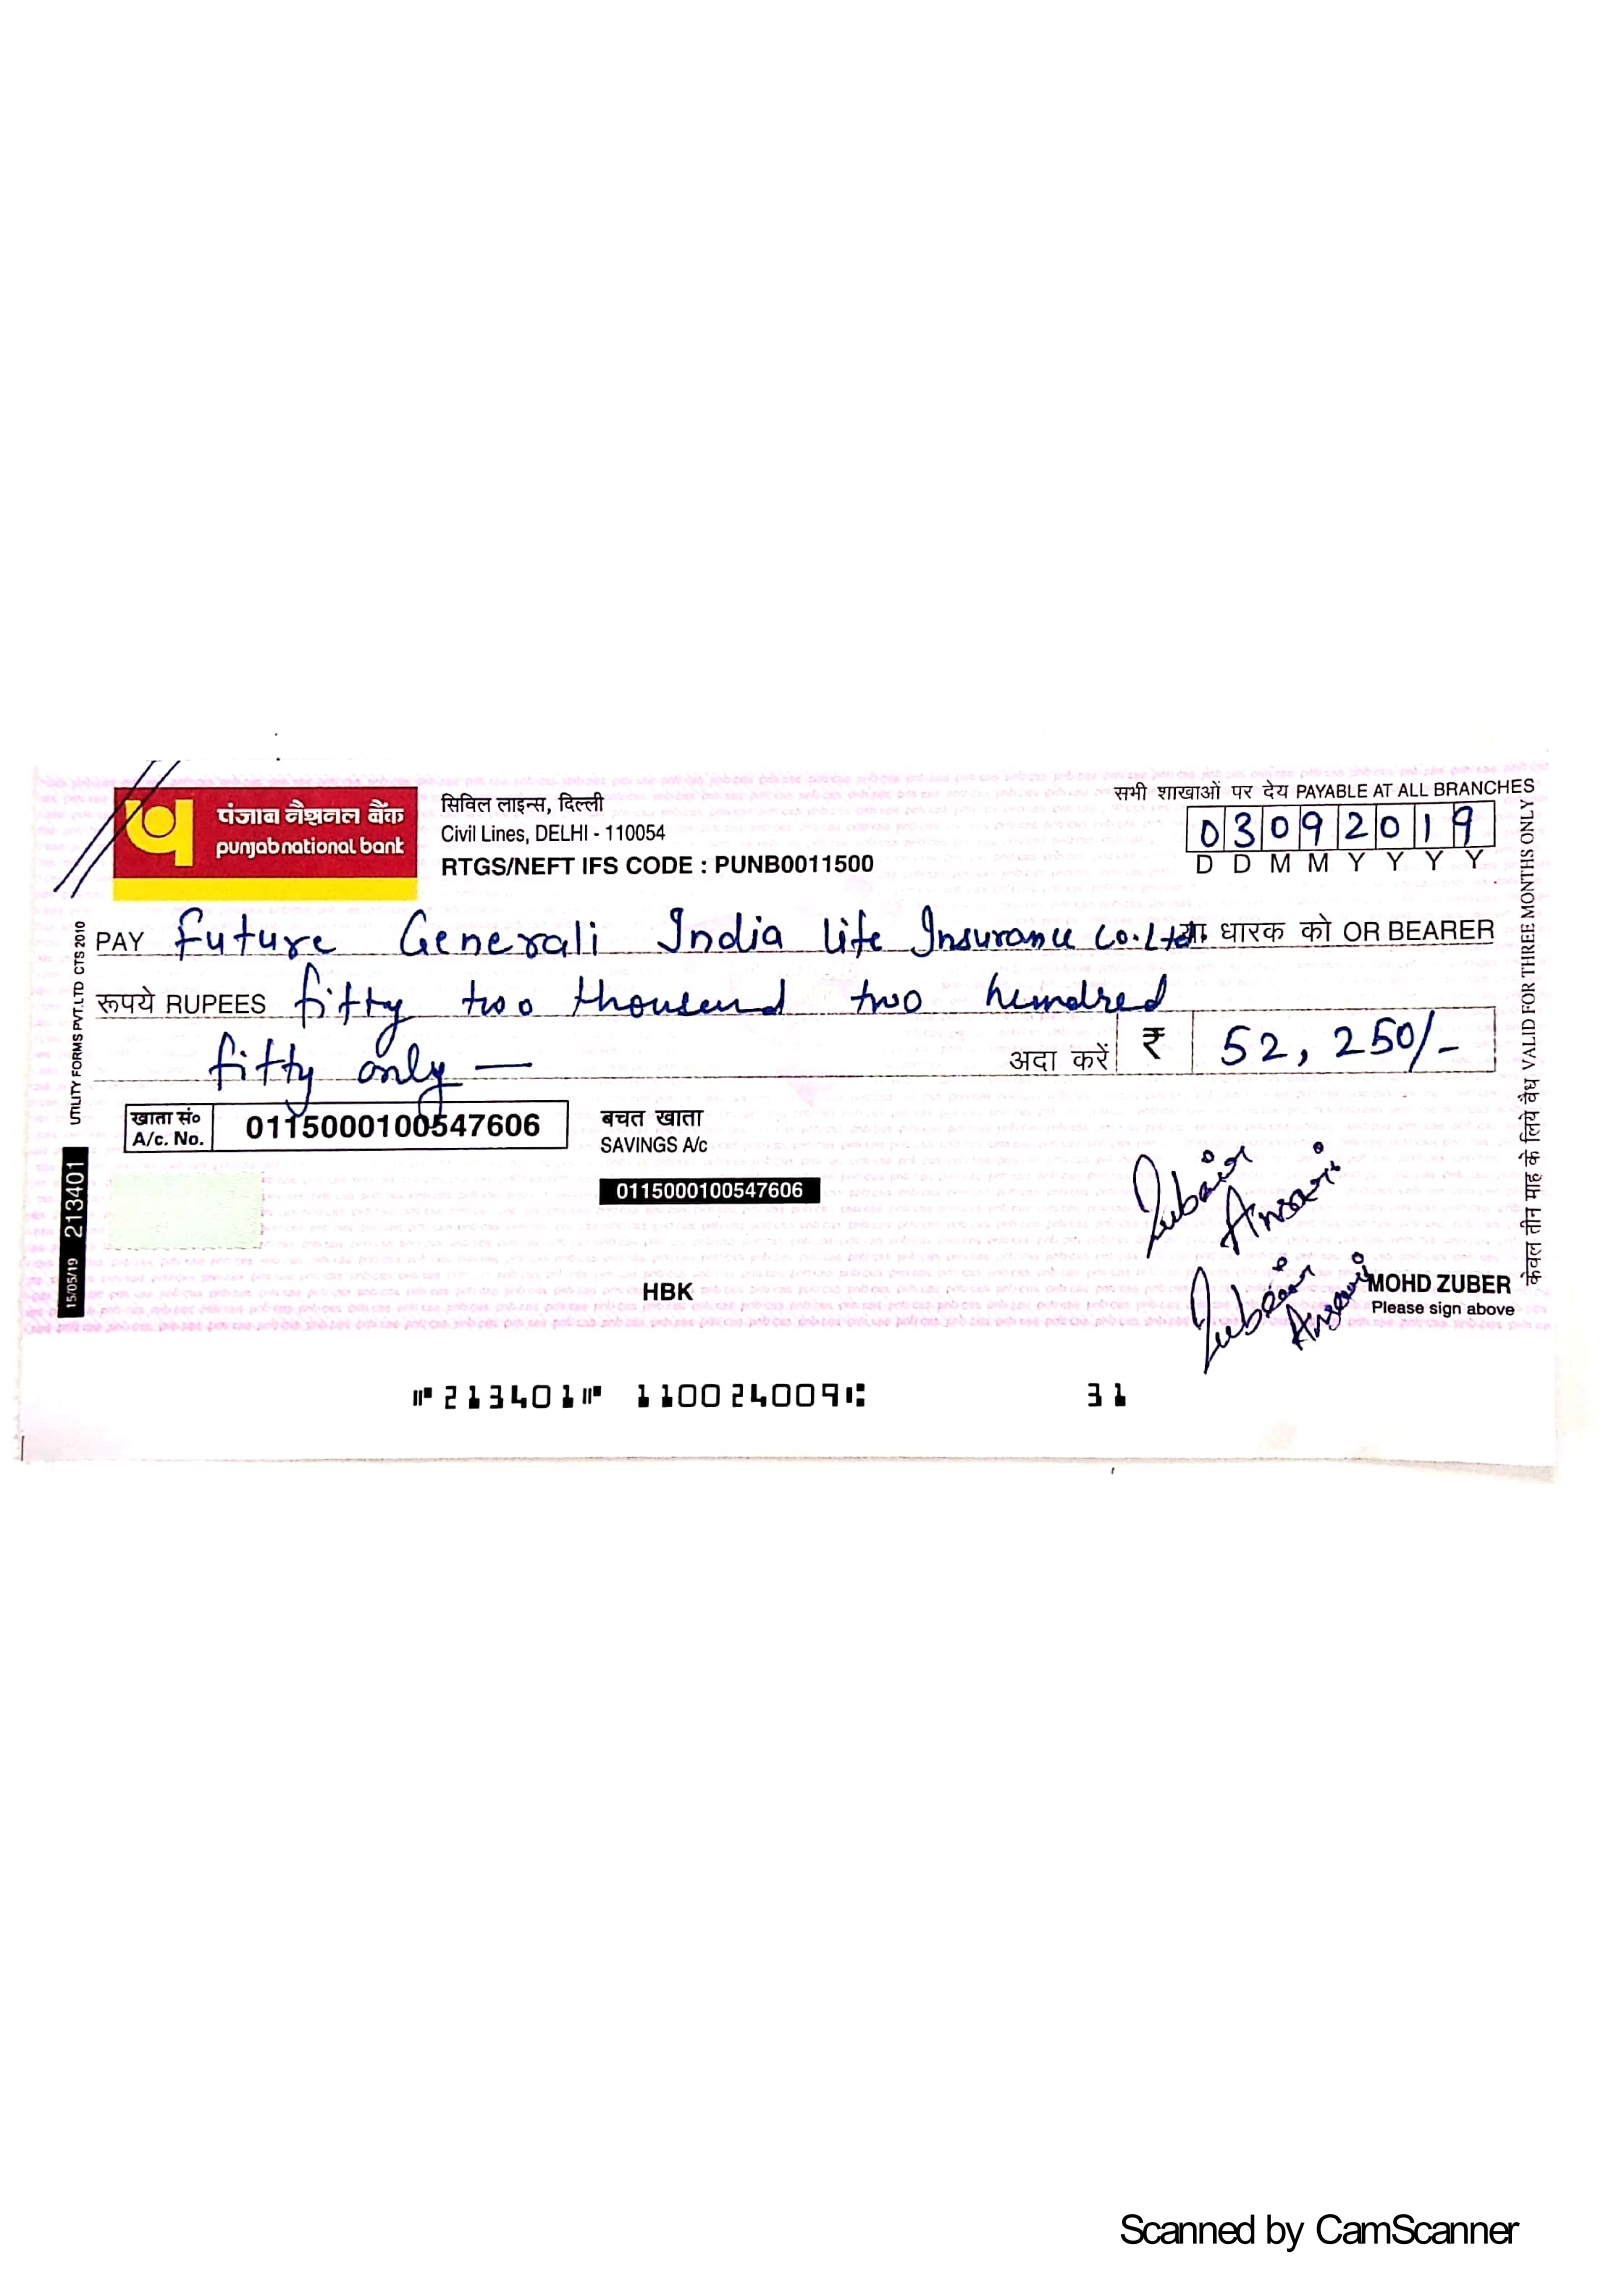 पंजाब नैशनल बैंक
punjab national bank
सिविल लाइन्स, दिल्ली
Civil Lines, DELHI - 110054
RTGS/NEFT IFS CODE : PUNB0011500
सभी शाखाओं पर देय PAYABLE AT ALL BRANCHES
0 3 0 9 2 0 1 9
D D M M Y Y Y Y
PAY Future Generali India Life Insurance Co. Ltd. या धारक को OR BEARER
रूपये RUPEES fifty two thousand two hundred
fifty only —
अदा करें ₹ 52, 250/-
खाता सं० A/c. No. 0115000100547606
बचत खाता
SAVINGS A/c
0115000100547606
Zubair
Ansari
Zubair
Ansari
HBK
MOHD ZUBER
Please sign above
UTILITY FORMS PVT.LTD CTS 2010
15/05/19 213401
केवल तीन माह के लिये वैध VALID FOR THREE MONTHS ONLY
⑈213401⑈ 110024009⑆ 31
Scanned by CamScanner